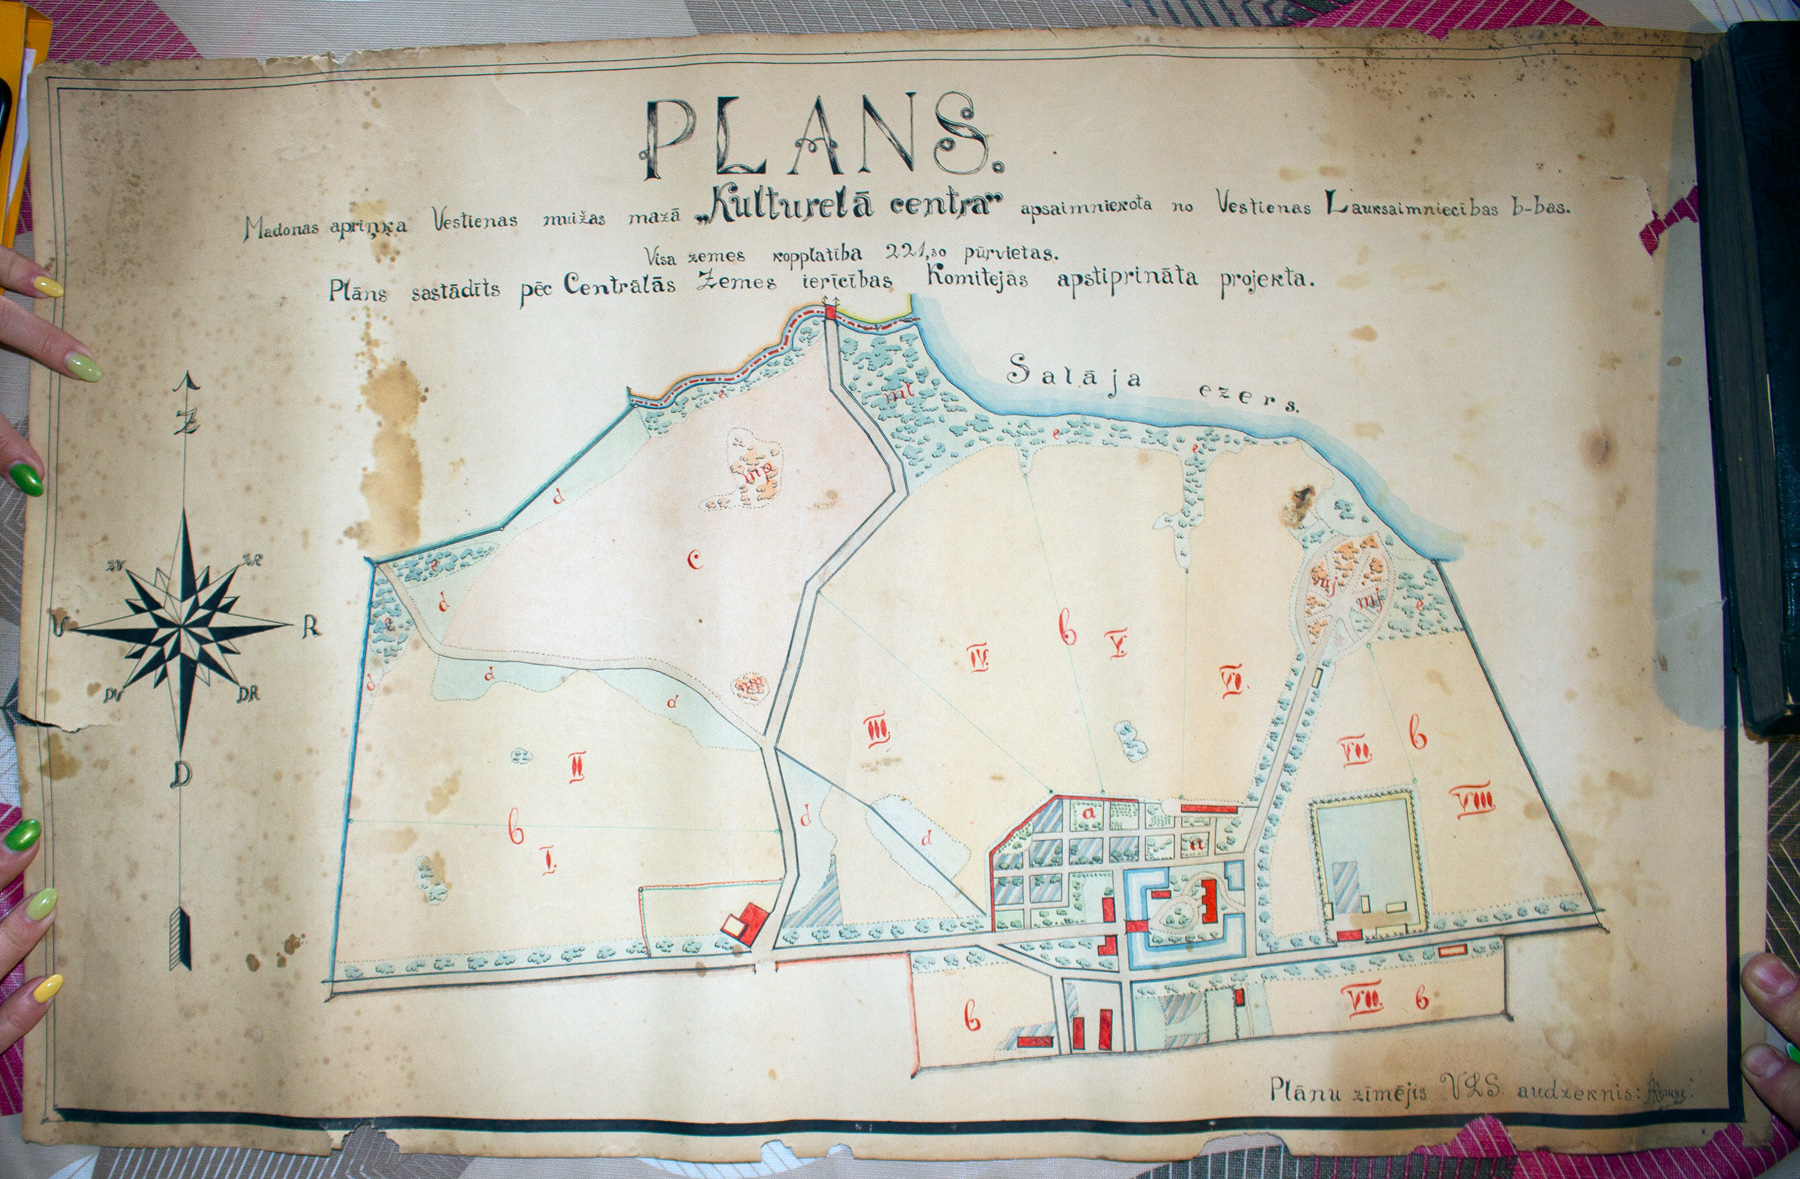 PLANS.
Madonas apriņķa Vestienas muižas mazā „Kulturelā centra" apsaimniekota no Vestienas Lauksaimniecības b-bas.
Visa zemes kopplatība 221,80 pūrvietas.
Plāns sastādīts pēc Centrālās Zemes ierīcības Komitejās apstiprināta projekta.
Salāja ezers.
ml
e
e
e
d
c
Z
e
d
e
d
d
d
mj
mj
e
ZV
ZR
V
R
DV
DR
D
IV.
b
V.
VI.
III.
II
b
I.
d
d
a
a
VII.
b
VIII.
b
VII.
b
Plānu zīmējis VLS. audzeknis: